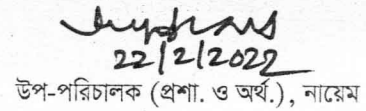 22/2/2022
উপ-পরিচালক (প্রশা. ও অর্থ.), নায়েম